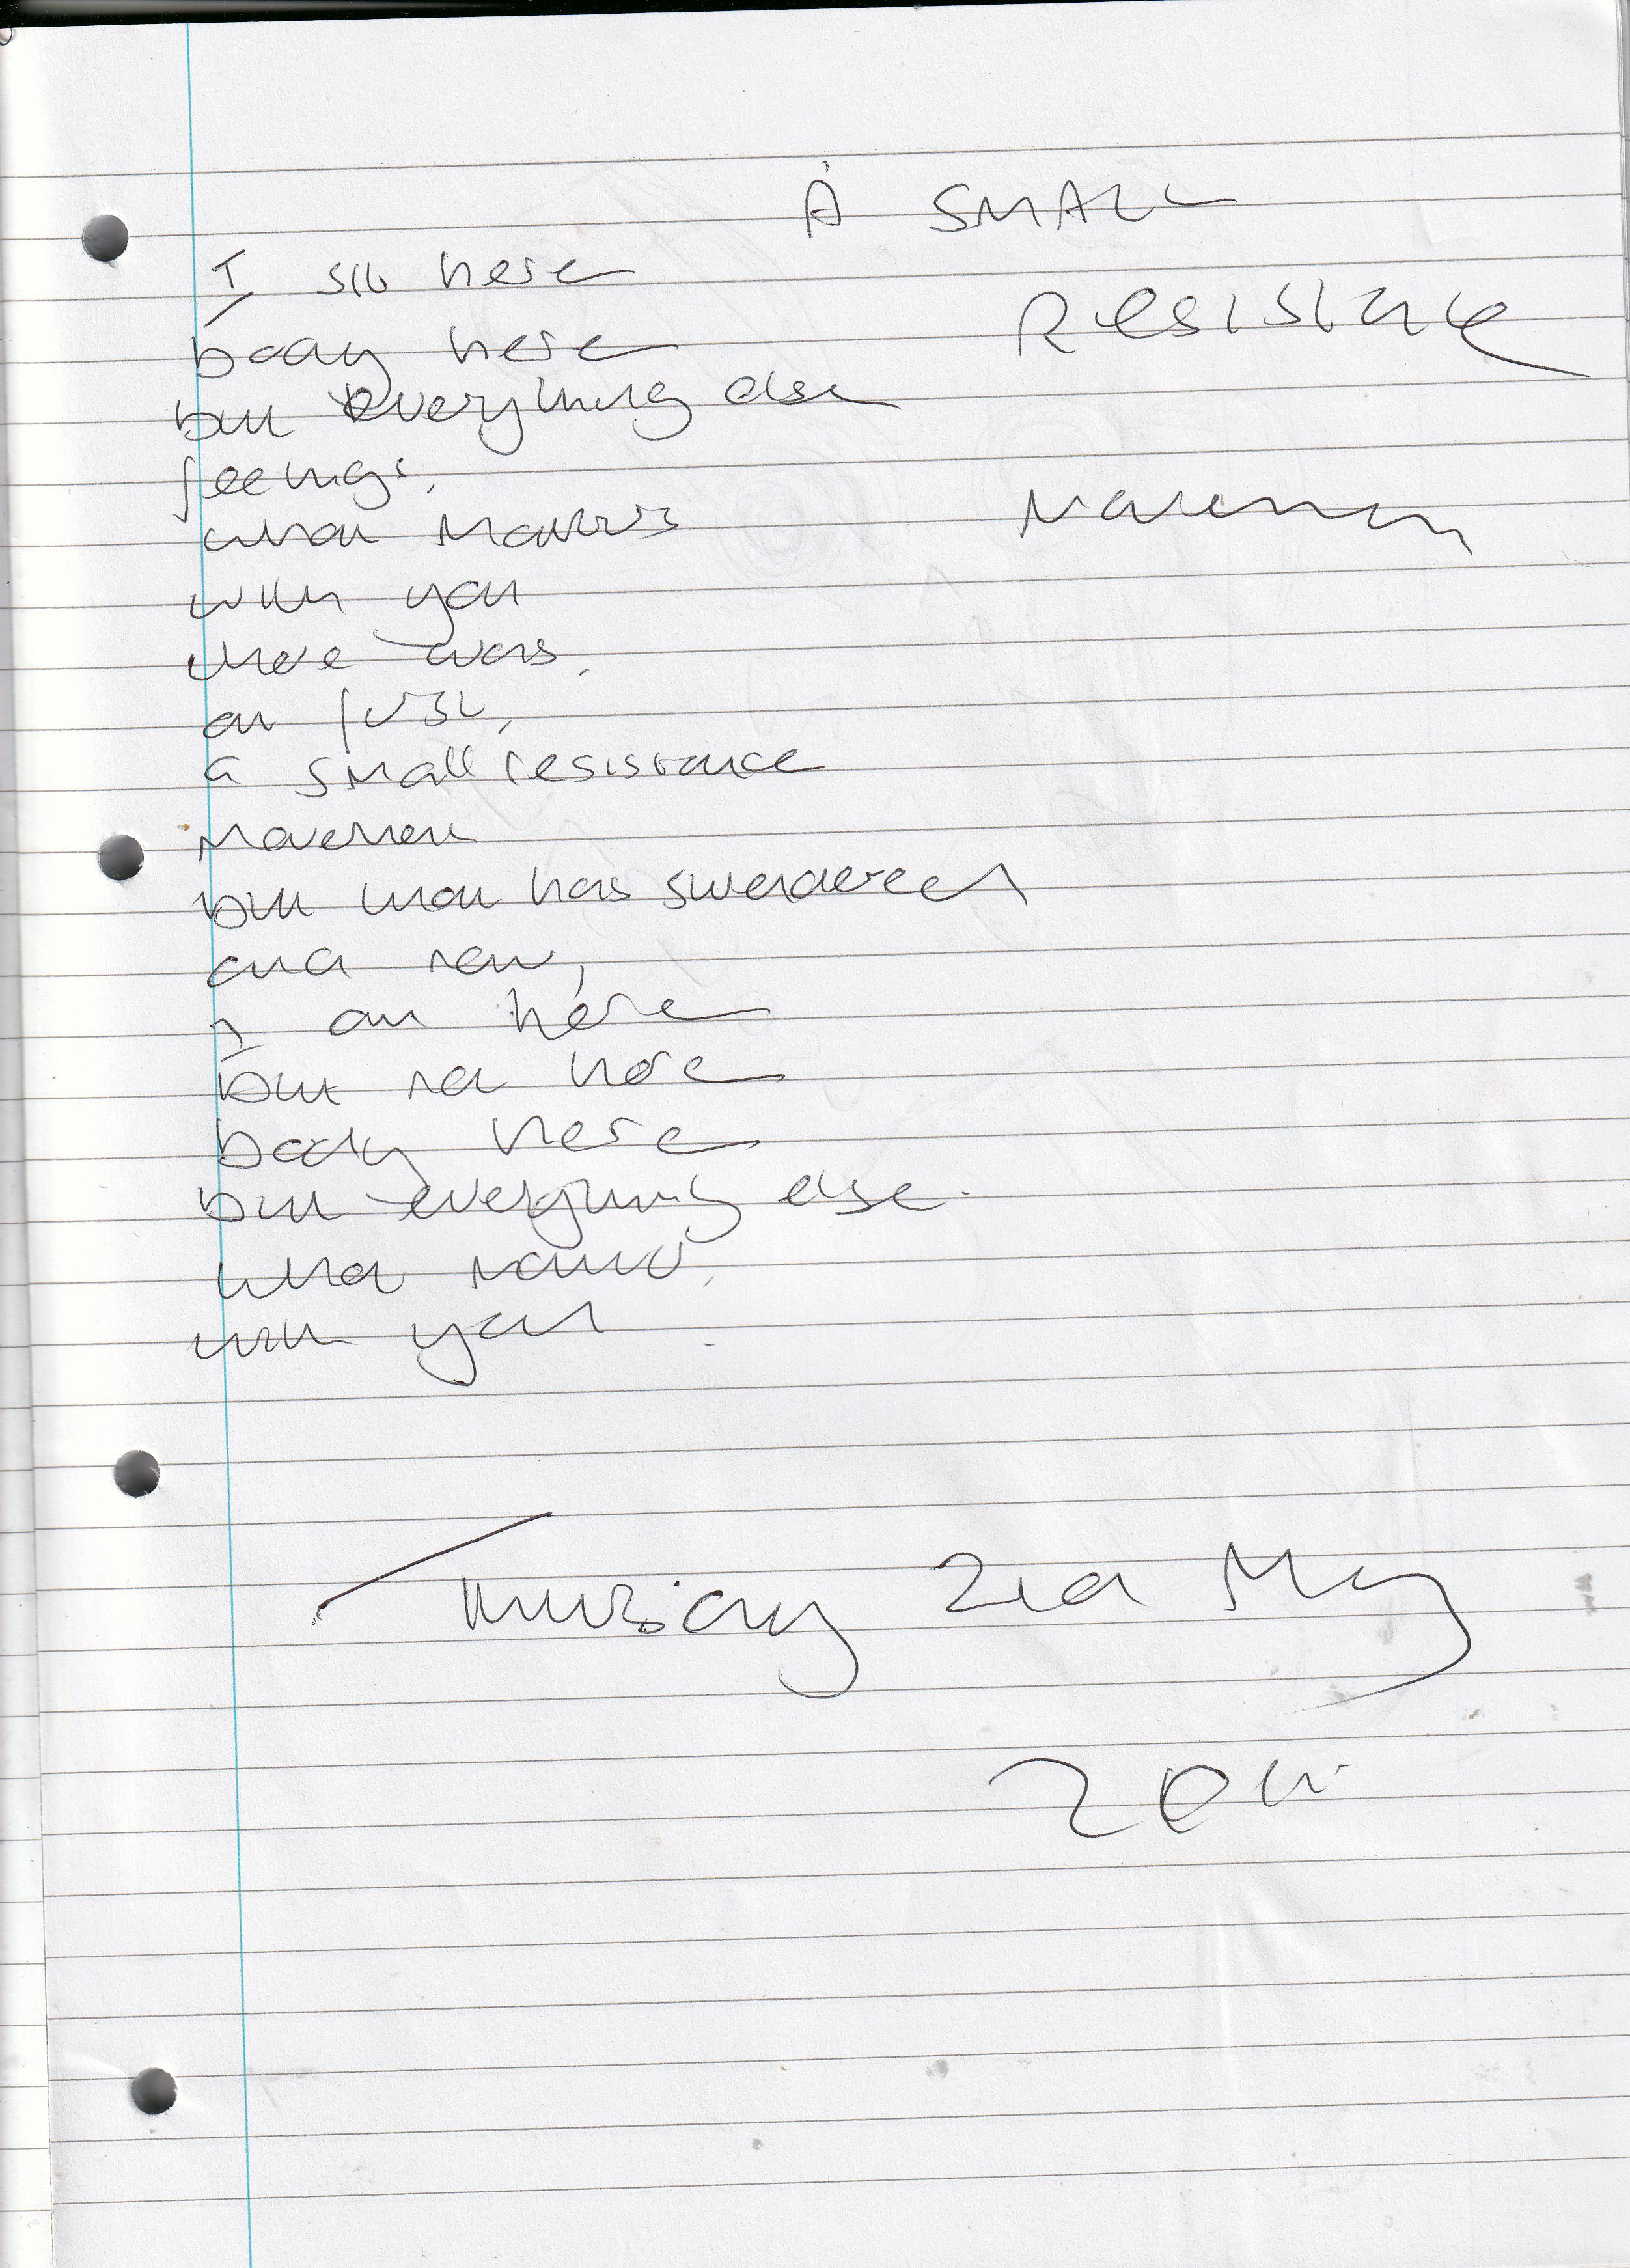 A SMALL
Resistance
Movement
I sit here
body here
but everything else
feelings,
what matters
with you
there was,
at first,
a small resistance
movement
but that has surrendered
and now,
I am here
but not here
body here
but everything else.
what matters,
with you
Thursday 2nd May